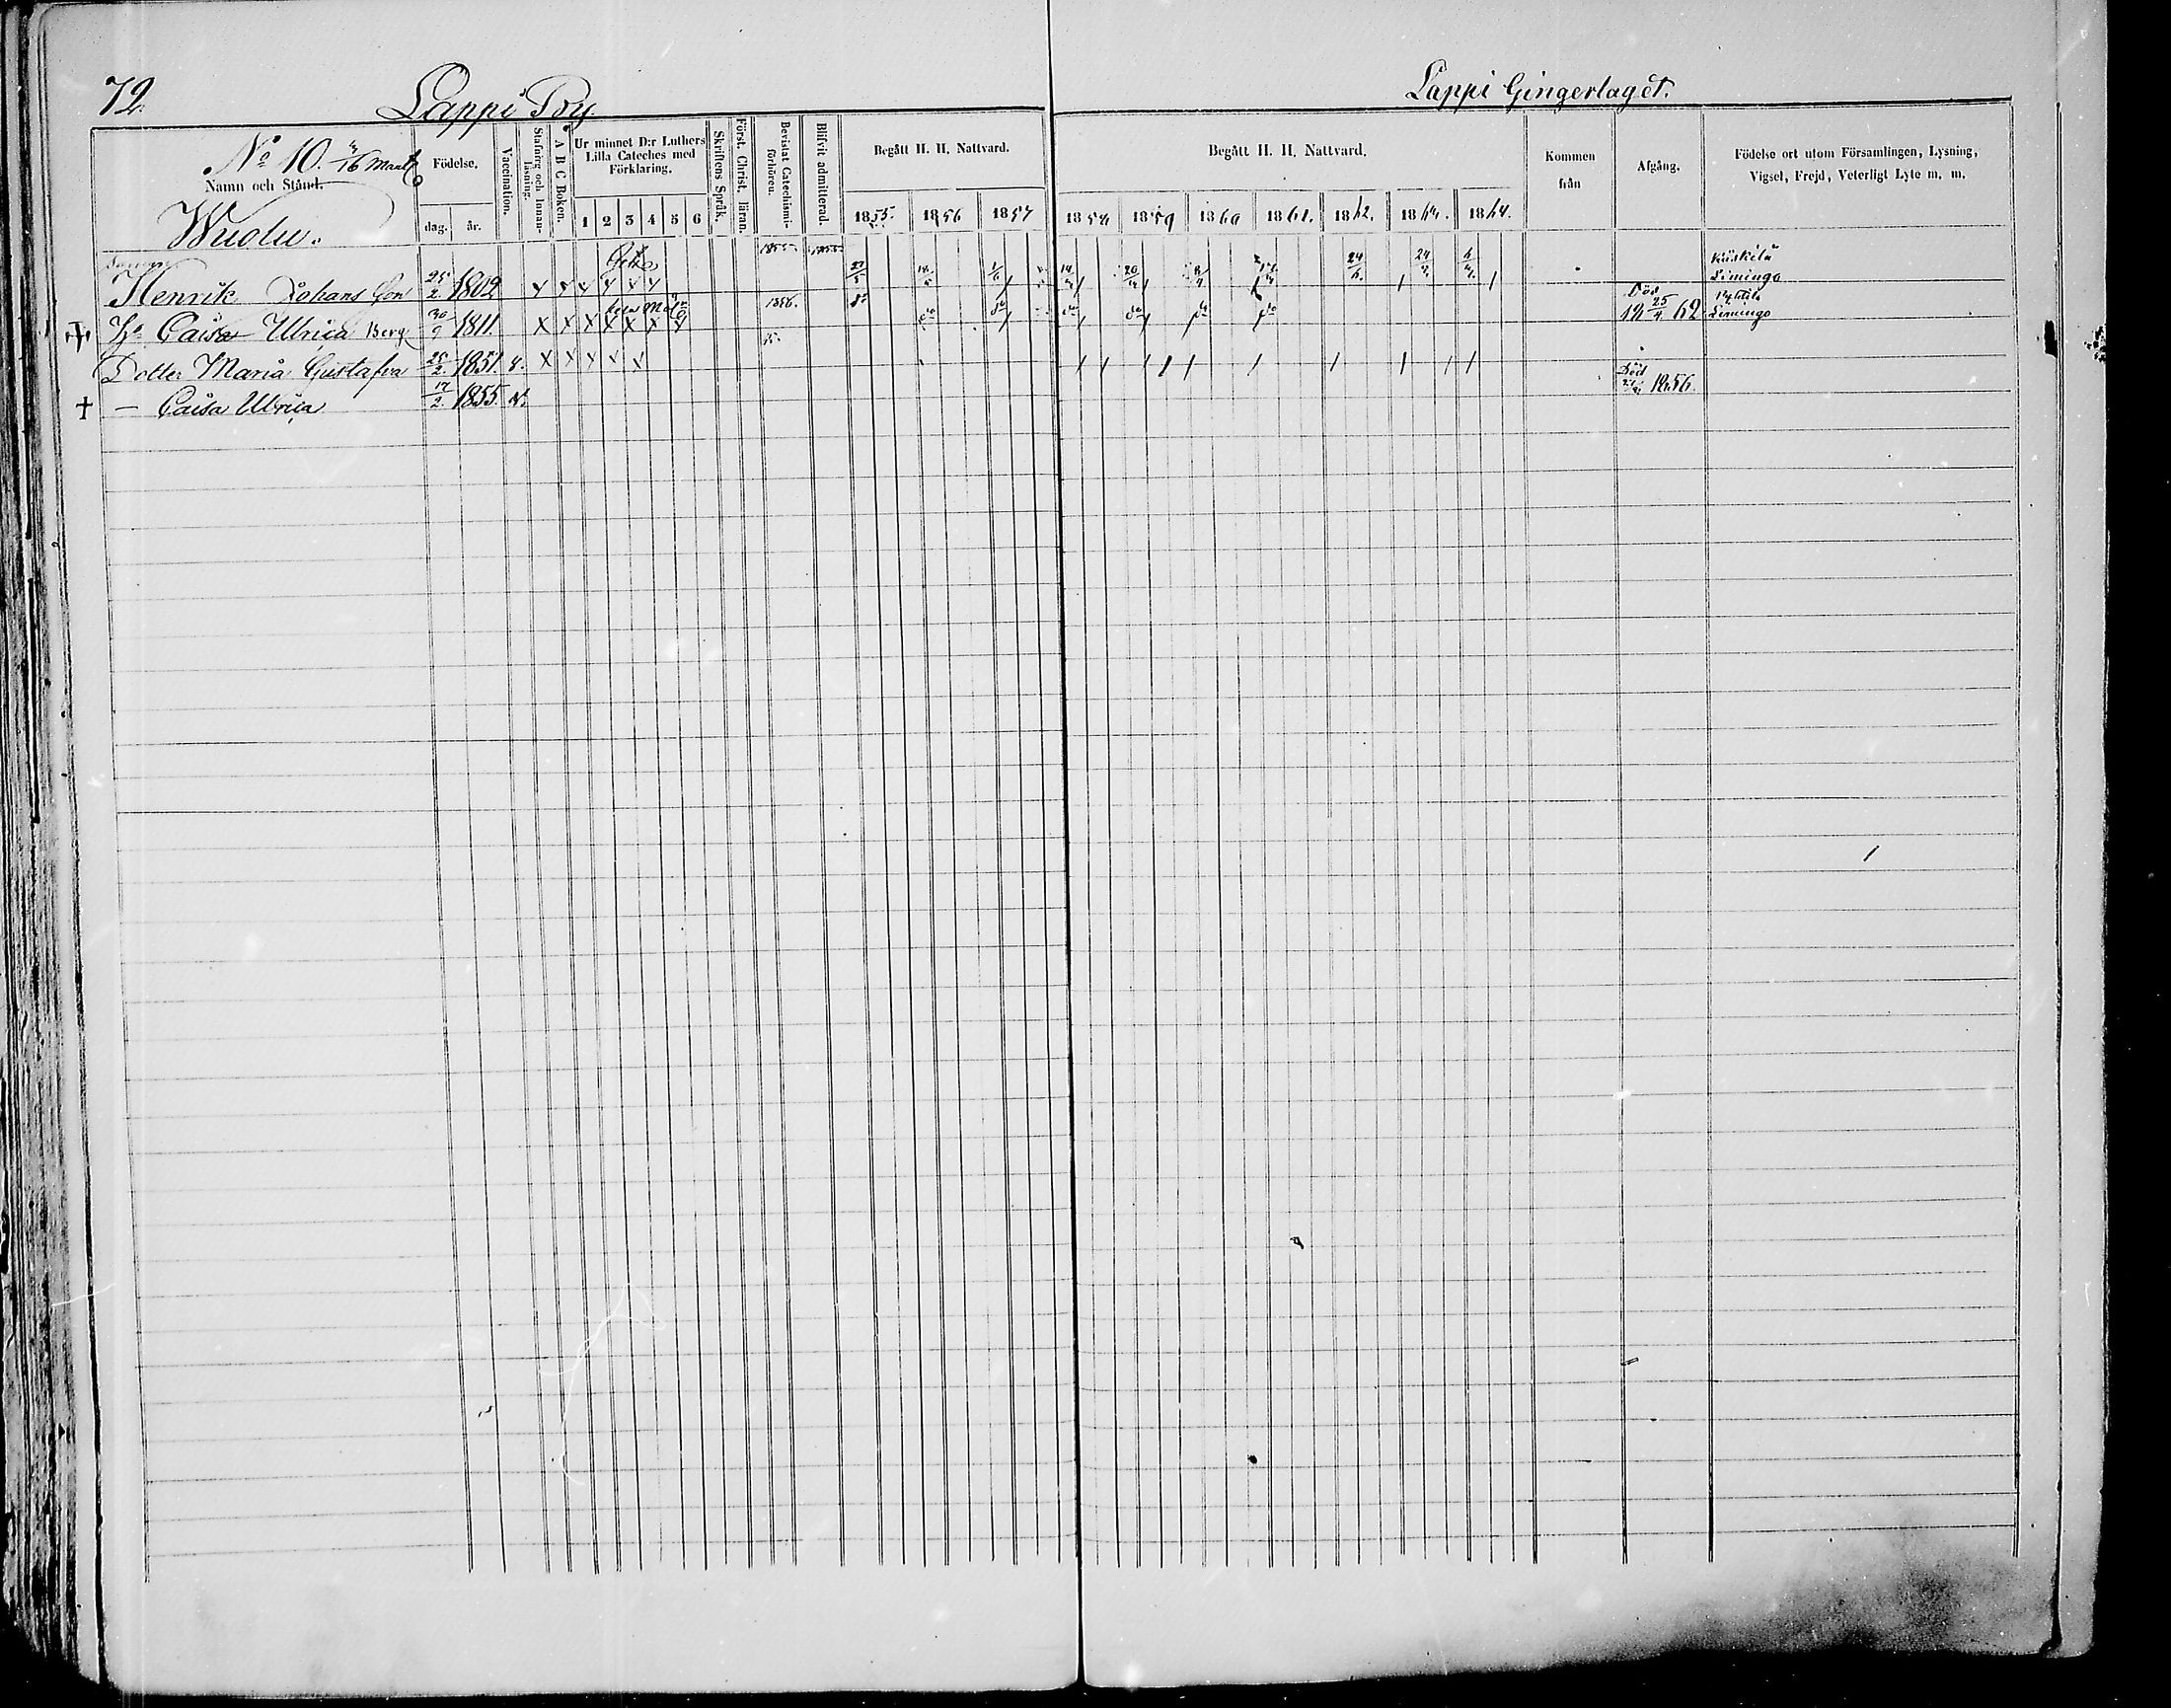 72
Lappi By.
Lappi Gingerlaget.
No 10. /16 Mant
Namn och Stånd.
Wuolu.
Födelse.
dag. år.
Vaccination.
Stafning och Innanläsning.
A B C Boken.
Ur minnet D:r Luthers Lilla Cateches med Förklaring.
1 2 3 4 5 6
Skriftens Språk.
Först. Christ. läran.
Bevistat Catechismi-förhören.
Blifvit admitterad.
Begått H. H. Nattvard.
1855. 1856 1857
Begått H. H. Nattvard.
1858 1859 1860 1861. 1862. 1863. 1864.
Kommen från
Afgång.
Födelse ort utom Församlingen, Lysning, Vigsel, Frejd, Veterligt Lyte m. m.
Henrik Johans Son 25/2 1802 x x x x x x 1855 27/5 24/6 Limingo
H. Caisa Ulrica Berg 30/9 1811. x x x x x x x 1856. do do do do do do Död 25/4 62 Limingo
Dotter Maria Gustafva 25/2 1851. v. x x x x x
† — Caisa Ulrica 17/2 1855. N. Död 1856.